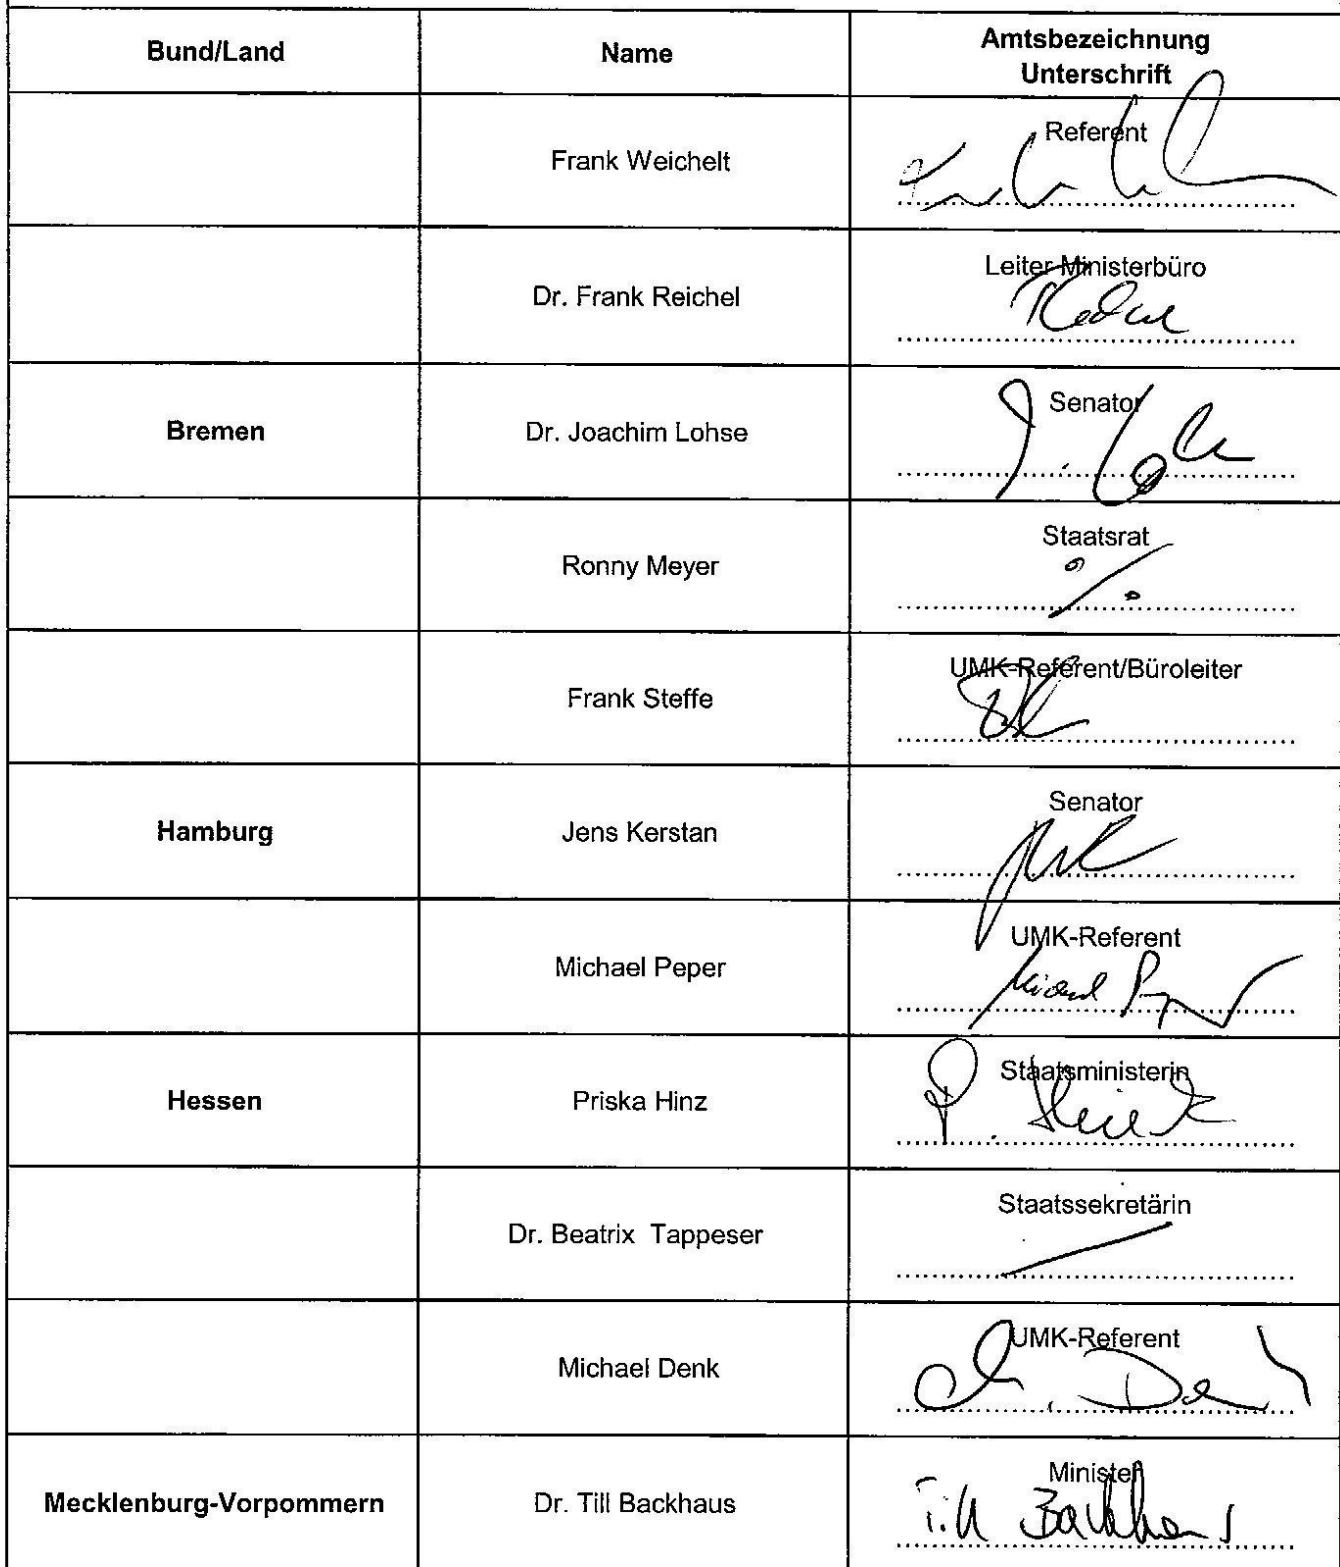 Bund/Land
Name
Amtsbezeichnung
Unterschrift
Frank Weichelt
Referent
Dr. Frank Reichel
Leiter Ministerbüro
Bremen
Dr. Joachim Lohse
Senator
Ronny Meyer
Staatsrat
Frank Steffe
UMK-Referent/Büroleiter
Hamburg
Jens Kerstan
Senator
Michael Peper
UMK-Referent
Hessen
Priska Hinz
Staatsministerin
P. Hinz
Dr. Beatrix Tappeser
Staatssekretärin
Michael Denk
UMK-Referent
Mecklenburg-Vorpommern
Dr. Till Backhaus
Minister
Till Backhaus